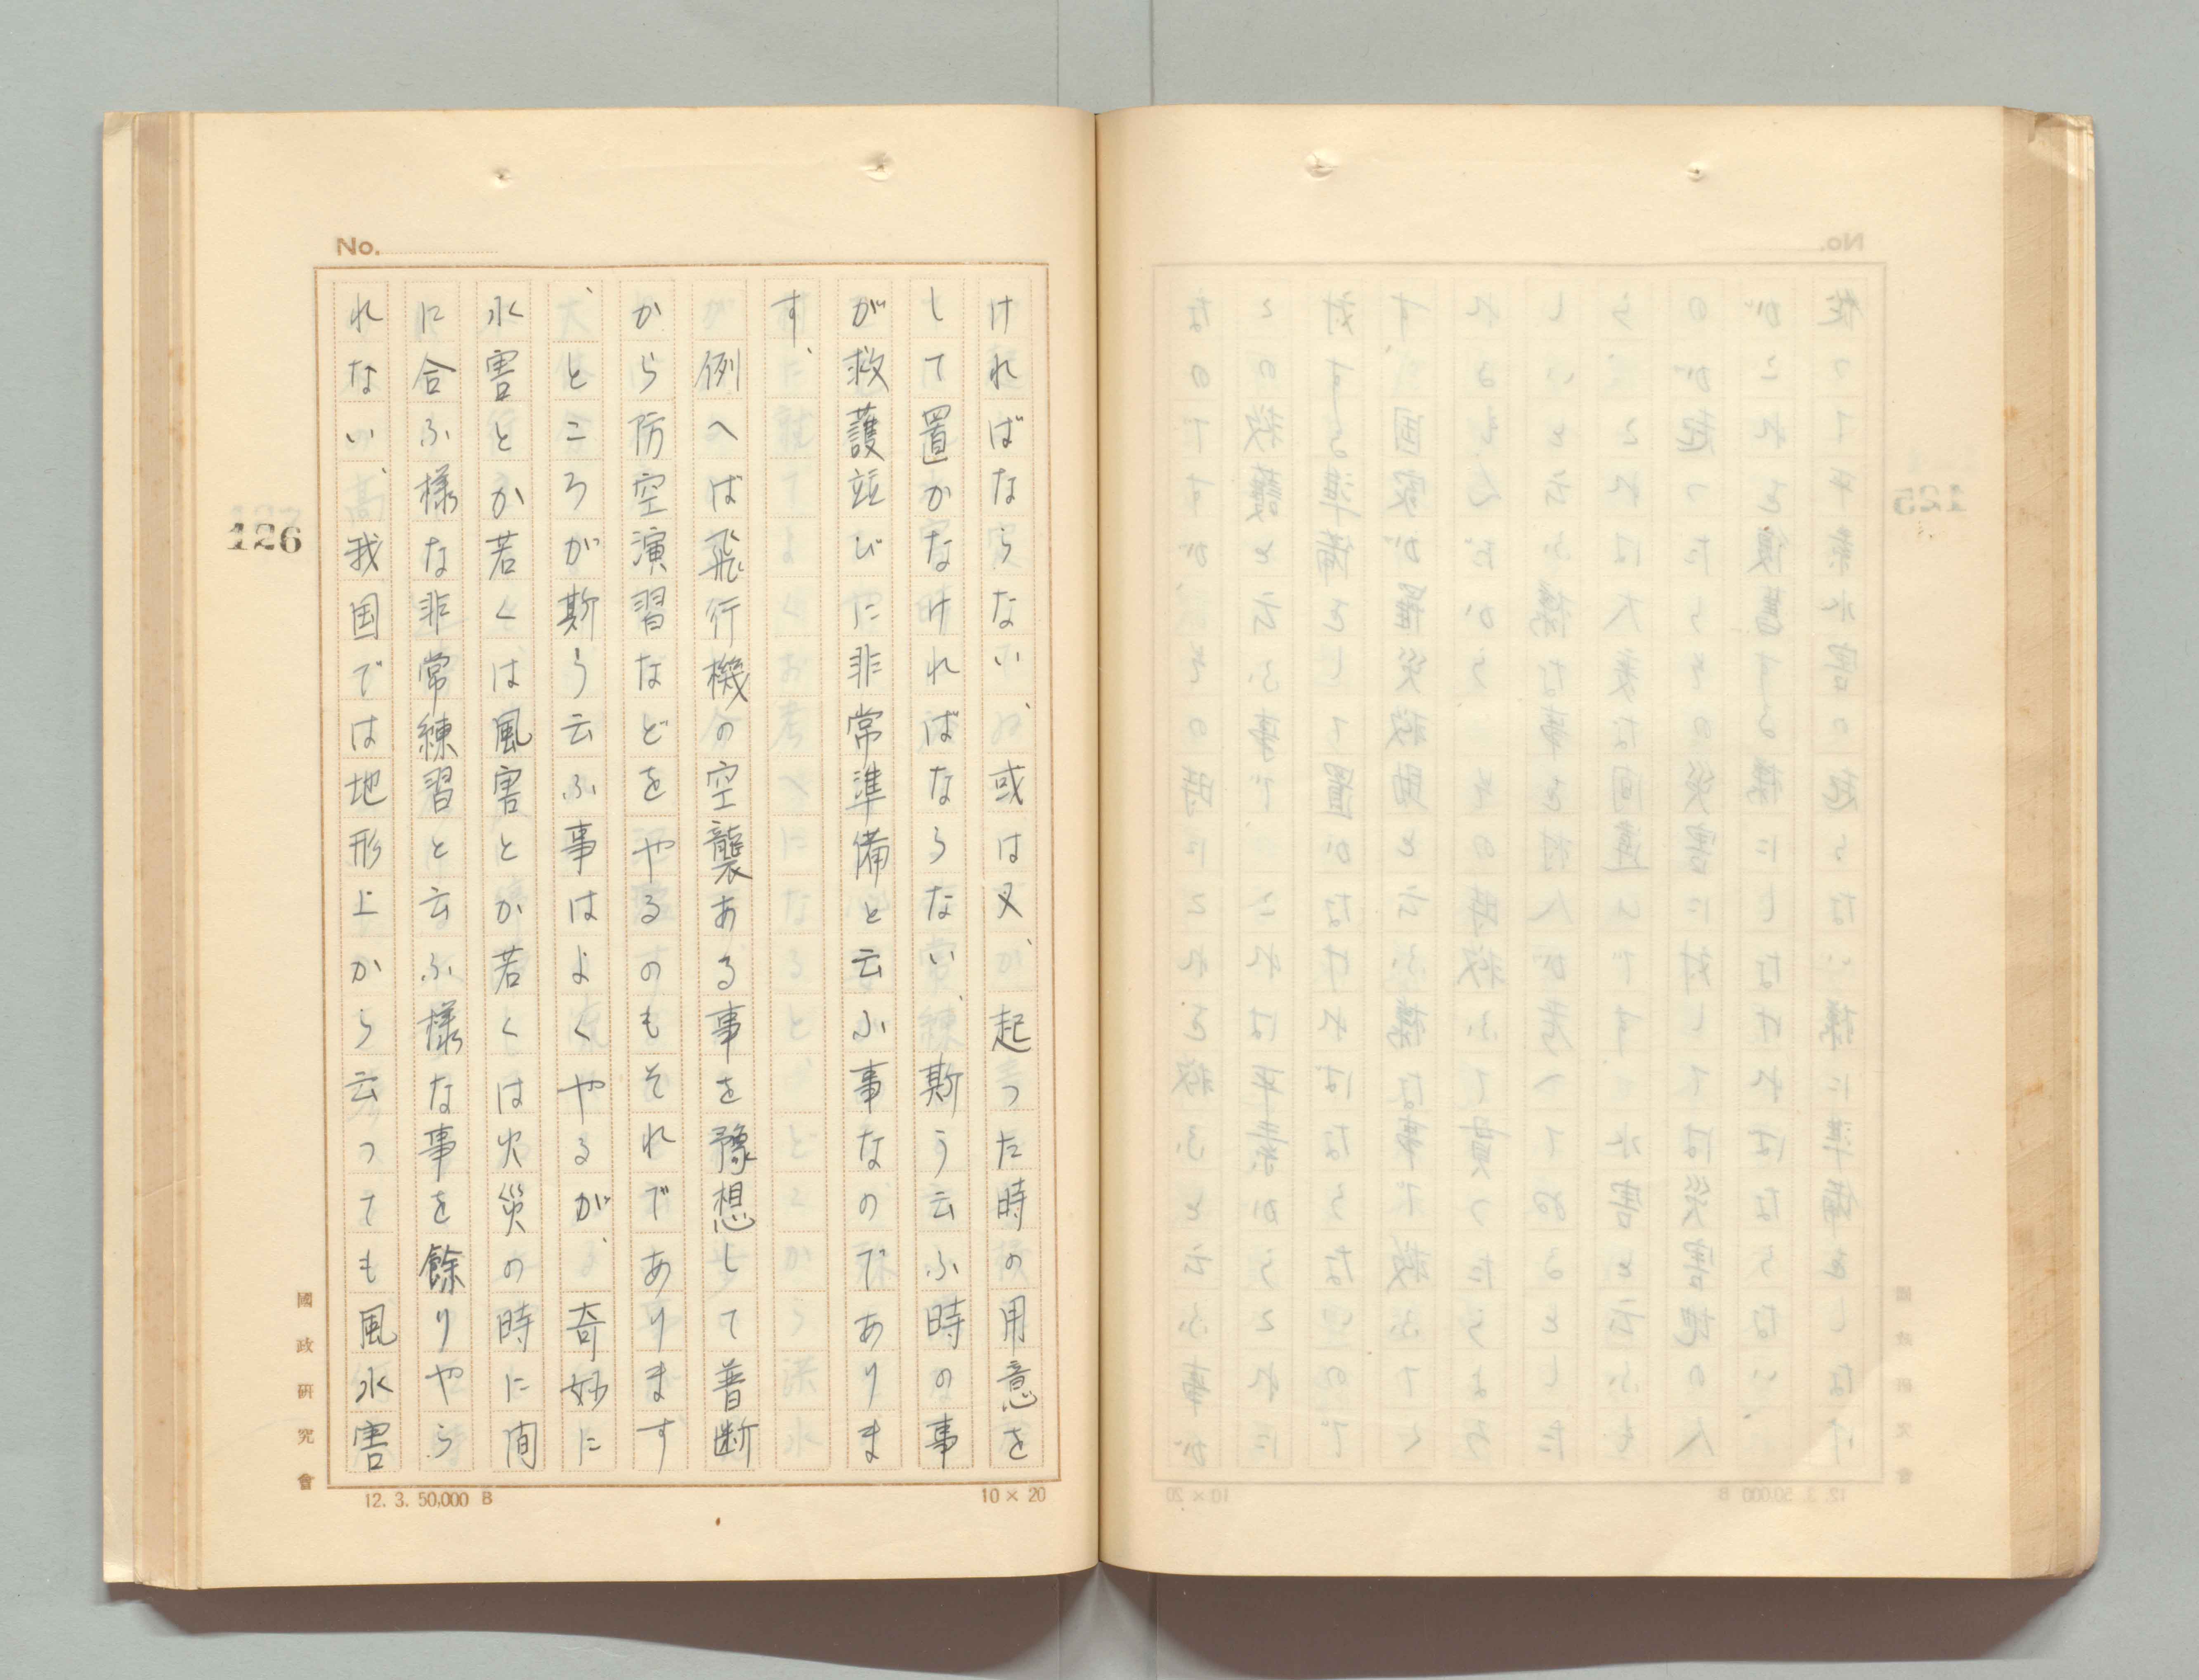 No.
126
ければならない、或は又、起つた時の用意を
して置かなければならない、斯う云ふ時の事
が救護並びに非常準備と云ふ事なのでありま
す、
例へば飛行機の空襲ある事を豫想して普断
から防空演習などをやるのもそれであります
、ところが斯う云ふ事はよくやるが、奇妙に
水害とか若くは風害とか若くは火災の時に間
に合ふ様な非常練習と云ふ様な事を餘りやら
れない、我国では地形上から云つても風水害
國政研究會
12. 3. 50,000 B
10 × 20